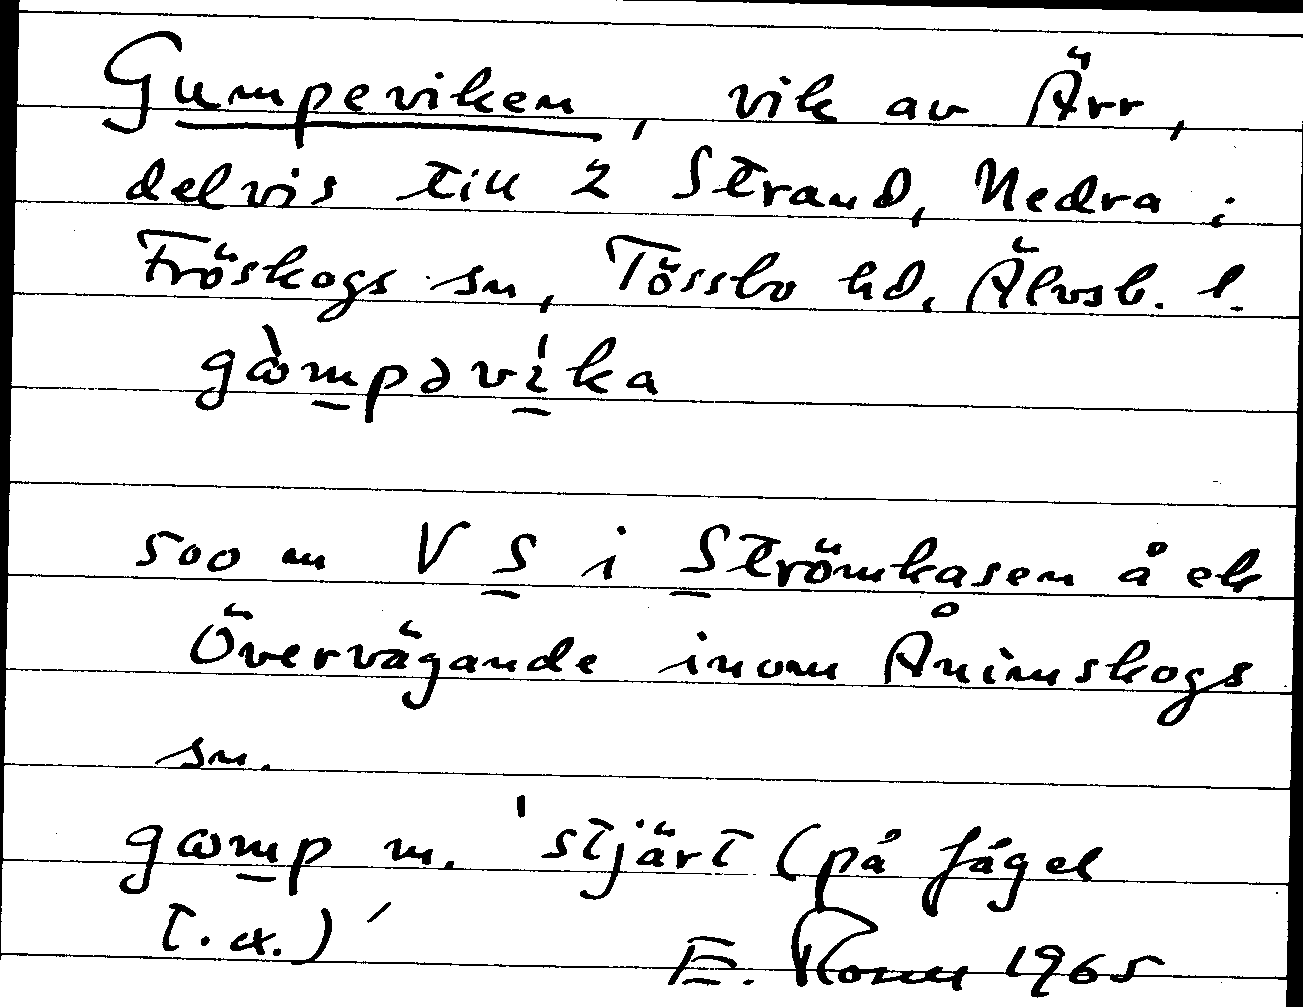 Gumpeviken, vik av Ärr,
delvis till 2 Strand, Nedra i
Fröskogs sn, Tössbo hd, Älvsb. l.
gὼmpəvíka
500 m V S i Strömkasen å ek
Övervägande inom Ånimskogs
sn.
gωmp m. 'stjärt (på fågel
t.ex.)'
E. 1965